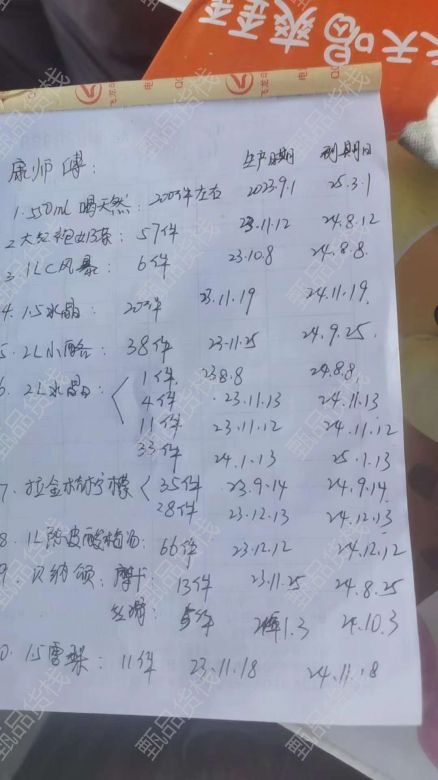 康师傅: 生产日期 到期日
1.550mL 喝天然: 200件左右 2023.9.1 25.3.1
2.大红袍奶茶: 57件 23.11.12 24.8.12
3.1L C风暴: 6件 23.10.8 24.8.8.
4.1.5水晶: 20件 23.11.19 24.11.19.
5.2L小酪: 38件 23.11.25 24.9.25.
6.2L水晶: 1件 23.8.8 24.8.8.
4件 23.11.13 24.11.13
11件 23.11.12 24.11.12
33件 24.1.13 25.1.13
7.拉金桔柠檬 35件 23.9.14 24.9.14.
28件 23.12.13 24.12.13
8.1L陈皮酸梅汤: 66件 23.12.12 24.12.12
9.贝纳颂: 摩卡 13件 23.11.25 24.8.25
丝滑: 5件 1.3 24.10.3
0.1.5雪梨: 11件 23.11.18 24.11.18
甄品货栈